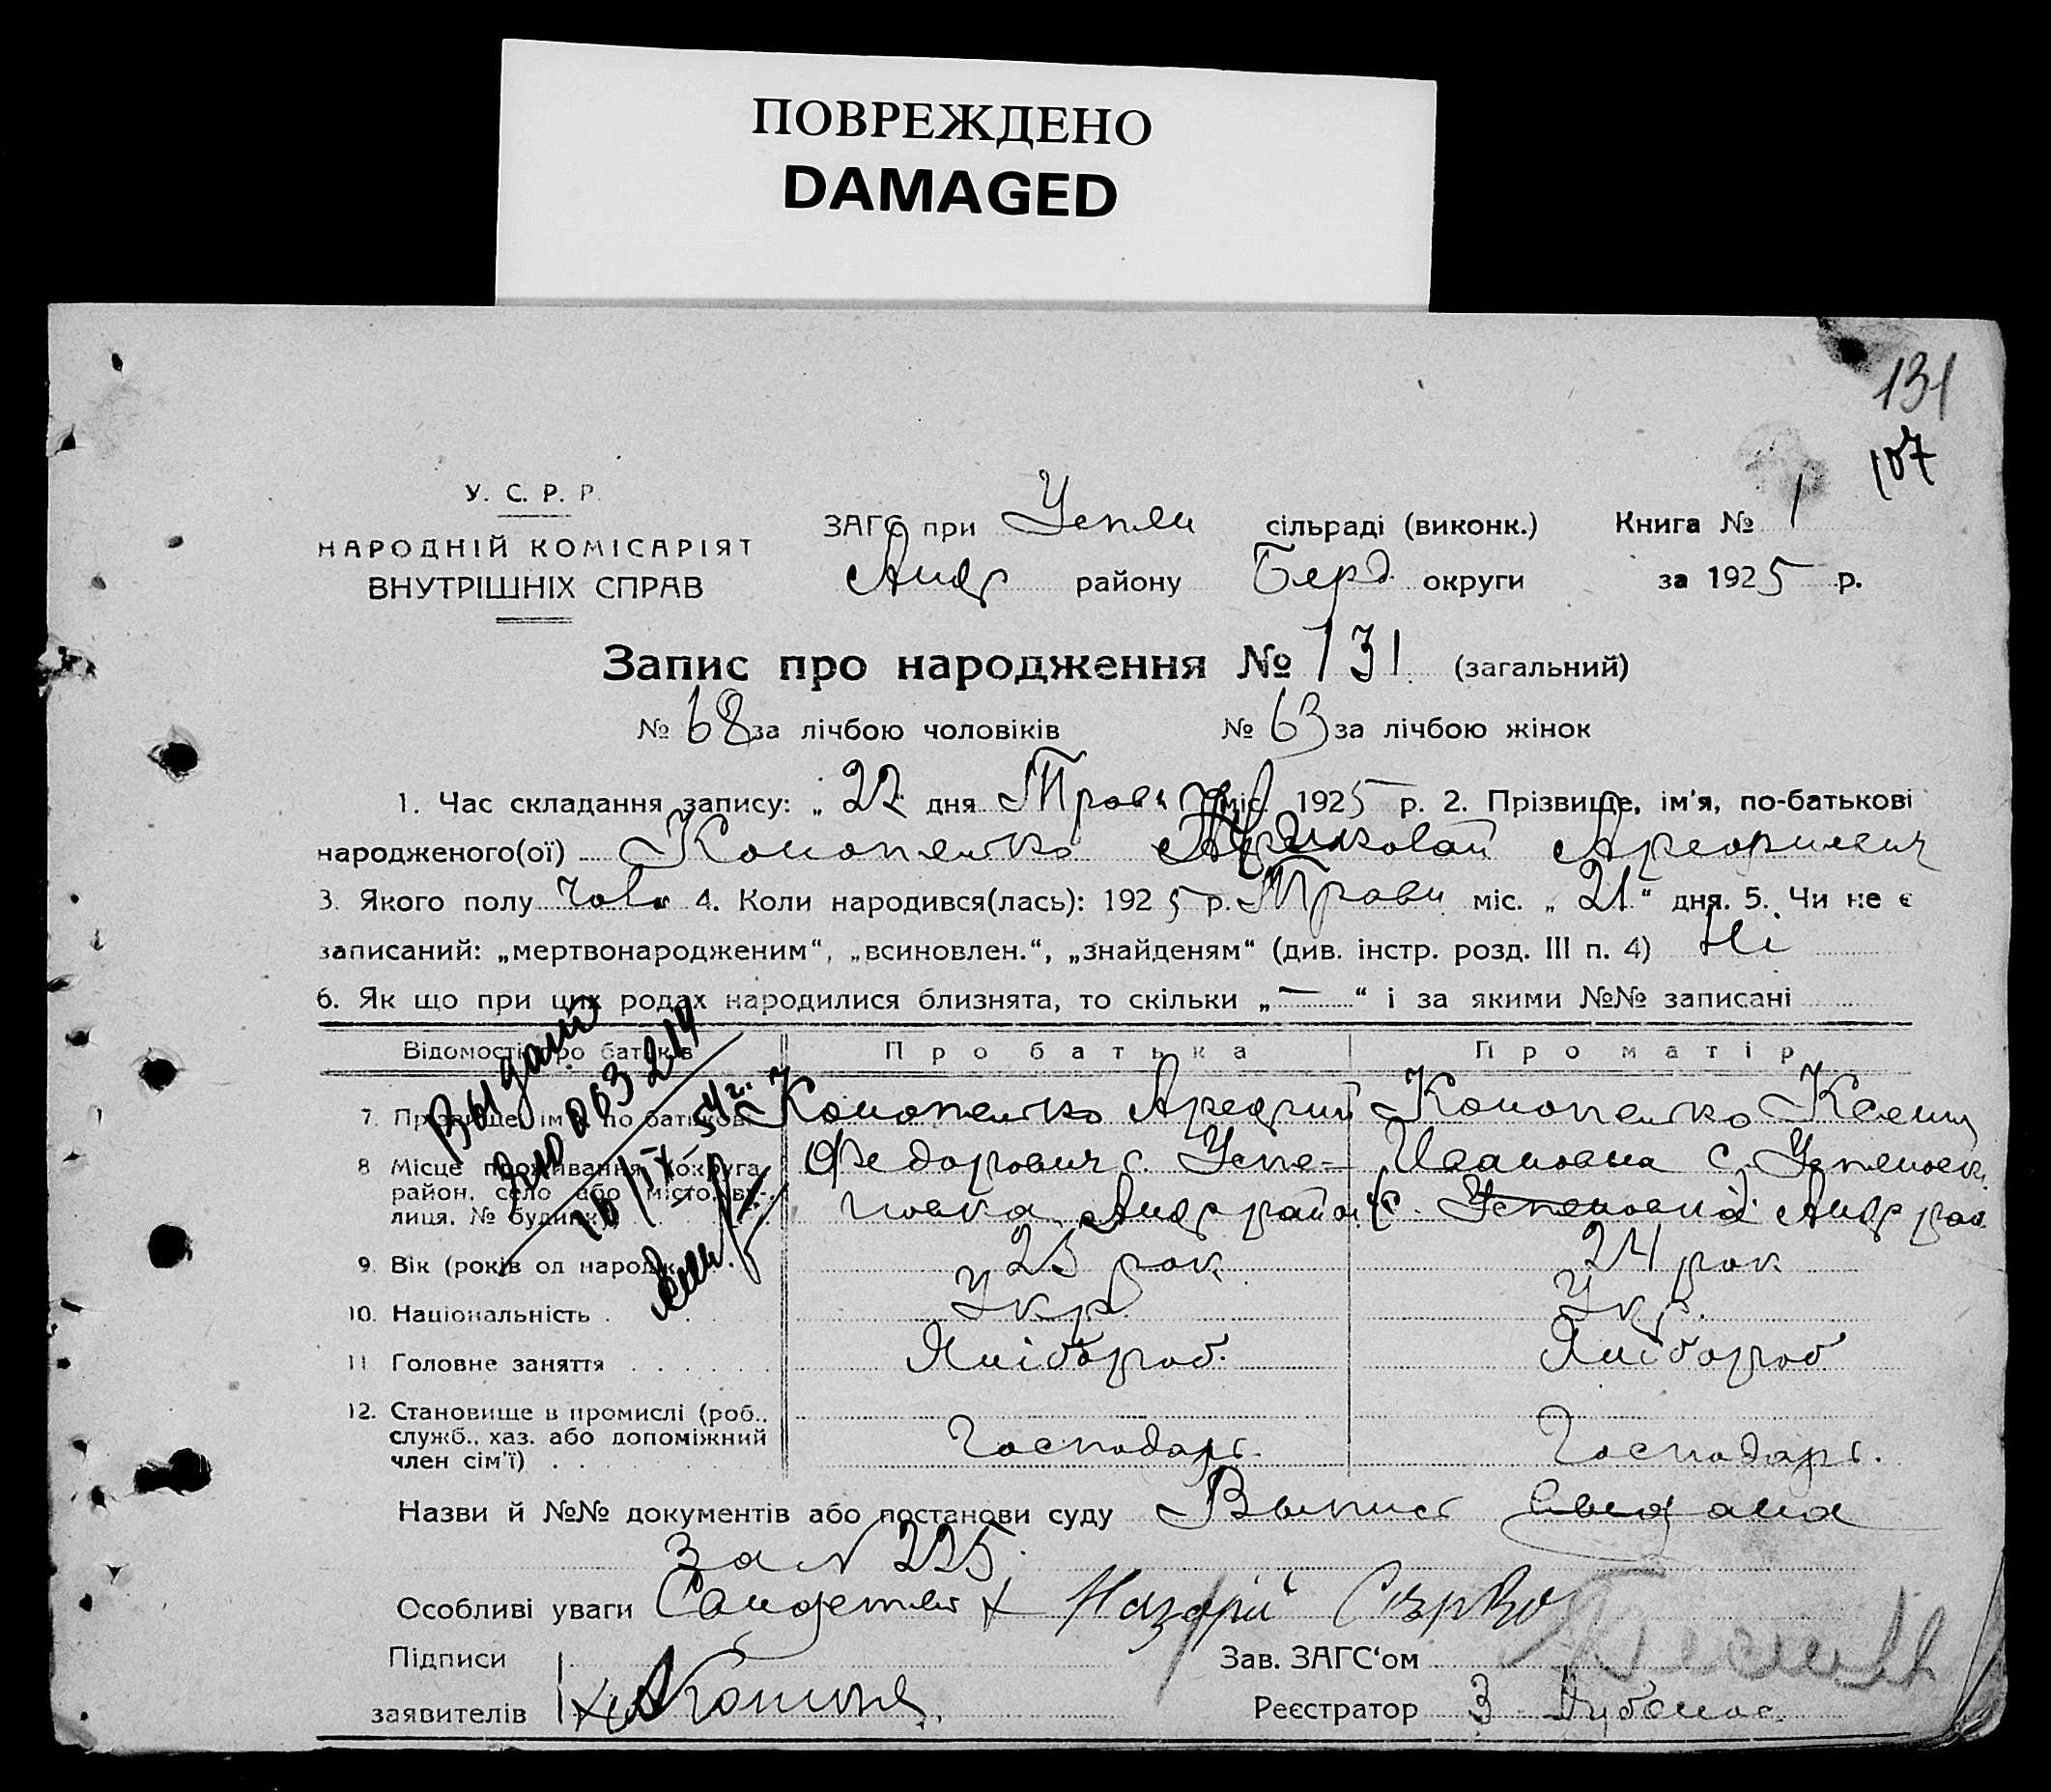 ПОВРЕЖДЕНО
DAMAGED
131
107
У. С. Р. Р.
НАРОДНІЙ КОМІСАРІЯТ
ВНУТРІШНІХ СПРАВ
ЗАГС при Успен сільраді (виконк.) Книга № 1
Андр району Берд округи за 1925 р.
Запис про народження № 131 (загальний)
№ 68 за лічбою чоловіків № 63 за лічбою жінок
1. Час складання запису: „22 дня Трав міс. 1925 р. 2. Прізвище, ім'я, по-батькові
народженого(ої) Конопелько
3. Якого полу чол 4. Коли народився(лась): 1925 р. Травн міс. „21“ дня. 5. Чи не є
записаний: „мертвонародженим“, „всиновлен.“, „знайденям“ (див. інстр. розд. III п. 4) Ні
6. Як що при цих родах народилися близнята, то скільки „—“ і за якими №№ записані
Відомості про батьків Про батька Про матір
7. Прізвище, ім'я, по батькові Конопелько Конопелько Ксения
8 Місце проживання (округа, район, село або місто, ву- Федорович с. Успе- Ивановна с. Успеновк
лиця, № будинк.) новка Андр район с. Успеновка Андр рай
9. Вік (років од народж. 25 рок 24 рок
10. Національність . Укр. Укр.
11 Головне заняття Хлібороб. Хлібороб
12. Становище в промислі (роб.,
служб., хаз. або допоміжний Господарь. Господарь.
член сім'ї) . .
Выдано
063214
Назви й №№ документів або постанови суду Выпись
за № 225
Особливі уваги Свидетели Назарій
Підписи Зав. ЗАГС'ом
заявителів Реєстратор З